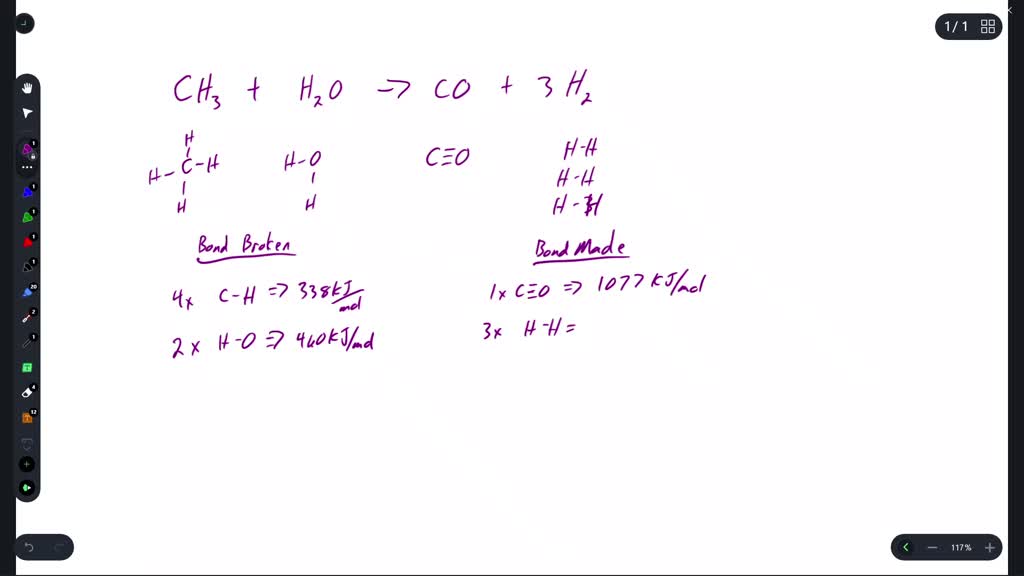 1/1
CH₃ + H₂O → CO + 3 H₂
H
H-C-H
H
H-O
H
C≡O
H-H
H-H
H-H
Bond Broken
4x C-H => 338 kJ/mol
2x H-O => 460 kJ/mol
Bond Made
1x C≡O => 1077 kJ/mol
3x H-H =
117%